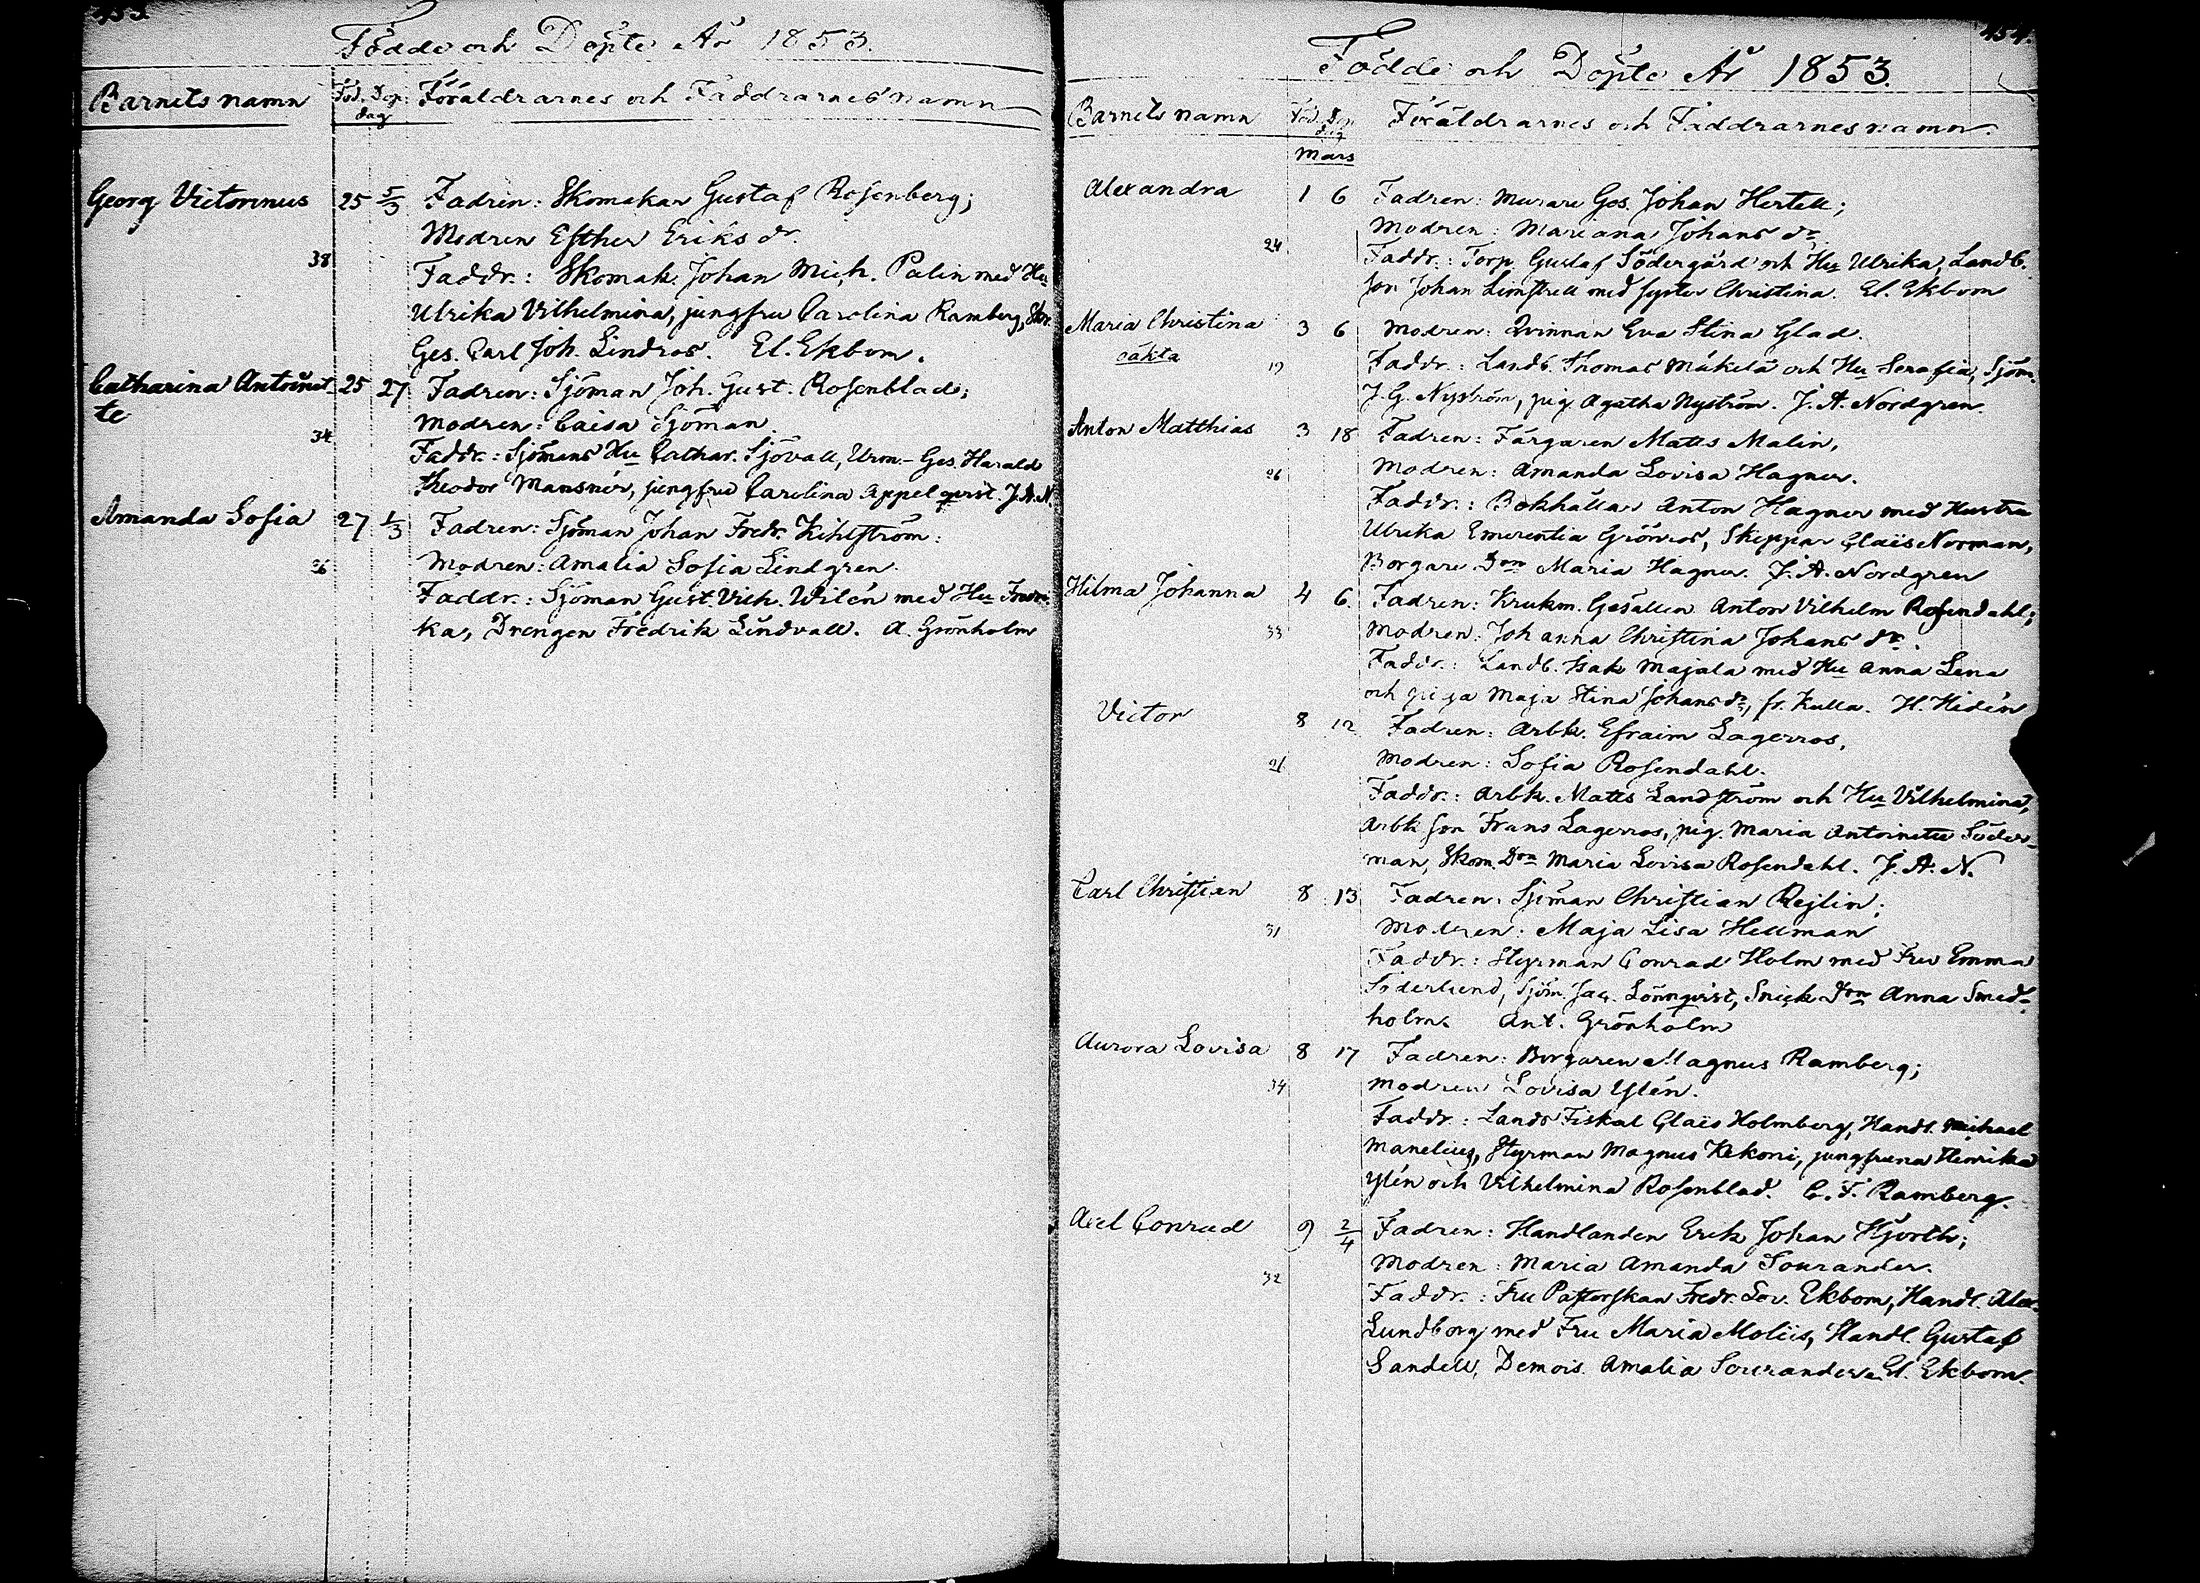 453.
Födde och Döpte År 1853.
Barnets namn Föd. Döp. dag Föräldrarnes och Faddrarnes namn
Georg Victorinus 25 5/3 Fadren: Skomakar Gustaf Rosenberg;
Modren Esther Eriks dr.
38 Faddr.: Skomak. Johan Mich. Palin med Hu
Ulrika Vilhelmina, jungfru Carolina Ramberg, Skr.
Ges. Carl Joh. Lindros. El. Ekbom.
Catharina Antoinet- 25 27 Fadren: Sjöman Joh. Gust. Rosenblad;
te Modren: Caisa Sjöman.
34 Faddr.: Sjömans Hu Cathar. Sjövall, Urm.- Ges. Harald
Theodor Mansnér, jungfru Carolina Appelqvist. J. A. N.
Amanda Sofia 27 1/3 Fadren: Sjöman Johan Fredr. Kihlström:
26 Modren: Amalia Sofia Lindgren.
Faddr.: Sjöman Gust. Vilh. Wilén med Hu
ka, Drengen Fredrik Lindvall. A. Grönholm
454.
Födde och Döpte År 1853.
Barnets namn Föd. Döp. dag Föräldrarnes och Faddrarnes namn
Mars
Alexandra 1 6 Fadren: Murare Ges. Johan Hertell;
Modren: Mariana Johans dr
24 Faddr.: Torp. Gustaf Södergård och Hu Ulrika, Landb.
son Johan Limstrell med syster Christina. El. Ekbom
Maria Christina 3 6 Modren: Qvinnan Eva Stina Glad.
oäkta 19 Faddr.: Landb. Thomas Mäkelä och Hu Serafia, Sjöm.
J. G. Nyström, pig. Agatha Nyström. J. A. Nordgren.
Anton Matthias 3 18 Fadren: Färgaren Matts Malin,
26 Modren: Amanda Lovisa Hagner.
Faddr.: Bokhållar Anton Hagner med Hustru
Ulrika Emerentia Grönros, Skeppar Claës Norman,
Borgare Drn Maria Hagner. J. A. Nordgren
Hilma Johanna 4 6. Fadren: Krukm. Gesällen Anton Vilhelm Rosendahl;
33 Modren: Johanna Christina Johans dr.
Faddr.: Landb. Isak Majala med Hu Anna Lena
och piga Maja Stina Johans dr, fr. Kulla. H. Hidén
Victor 8 12 Fadren: Arbk. Efraim Lagerros,
21 Modren: Sofia Rosendahl.
Faddr.: Arbk. Matts Landström och Hu Vilhelmina,
Arbk son Frans Lagerros, pig. Maria Antoinette Söder-
man, Skom. Drn Maria Lovisa Rosendahl. J. A. N.
Carl Christian 8 13 Fadren: Sjöman Christian Rejlin;
31 Modren: Maja Lisa Hellman
Faddr.: Styrman Conrad Holm med Fru Emma
Söderlund, Sjöm. Jac. Lönnqvist, Snick. Drn Anna Smed-
holm. Ant. Grönholm
Aurora Lovisa 8 17 Fadren: Borgaren Magnus Ramberg;
34 Modren Lovisa Ylén.
Faddr: Lands Fiskal Claës Holmberg, Handl. Michael
Manelius, Styrman Magnus Kekoni, jungfruna Henrika
Ylén och Vilhelmina Rosenblad. C. F. Ramberg.
Axel Conrad 9 2/4 Fadren: Handlanden Erik Johan Hjorth;
32 Modren: Maria Amanda Sourander.
Faddr.: Fru Pastorskan Fredr. Lov. Ekbom, Handl. Alex.
Lundborg med Fru Maria Moliis, Handl. Gustaf
Sandell, Demois. Amalia Sourander. El. Ekbom.